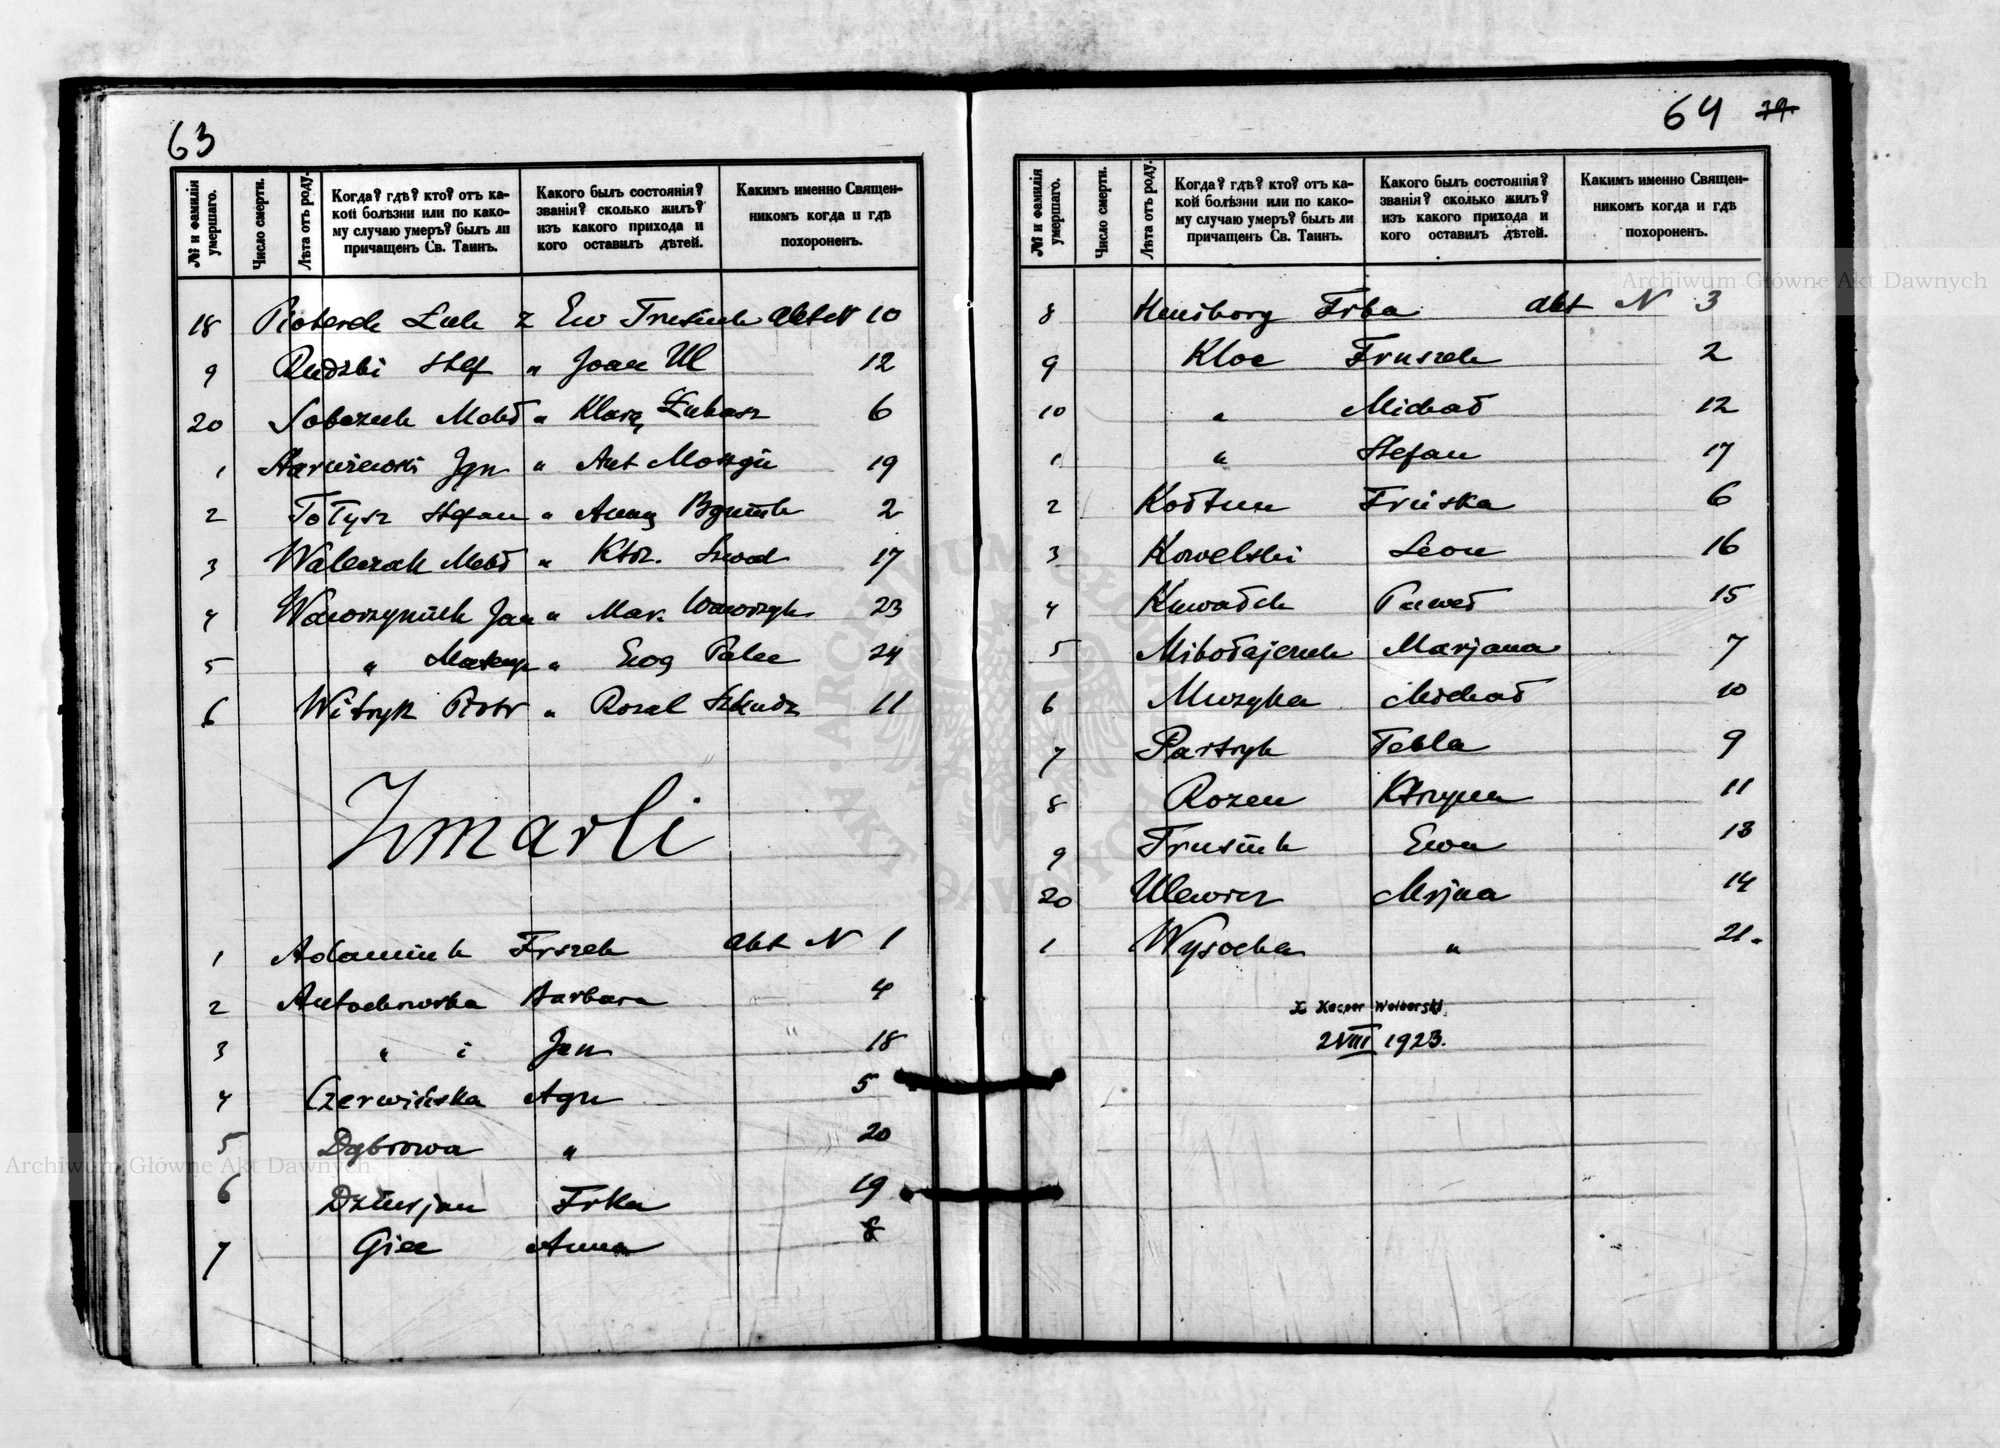 63
№ и фамилія умершаго.
Число смерти.
Лѣта отъ роду.
Когда? гдѣ? кто? отъ ка-
кой болѣзни или по како-
му случаю умеръ? былъ ли
причащенъ Св. Таинъ.
Какого былъ состоянія?
званія? сколько жилъ?
изъ какого прихода и
кого оставилъ дѣтей.
Какимъ именно Священ-
никомъ когда и гдѣ
похороненъ.
18 z Ew Trusiuk akt N 10
9 Rudzki Stef " Joan Ul 12
20 Sobczuk Mchł " Klarą Łukasz 6
1 Ign " Ant 19
2 Tołysz Stefan " Anną 2
3 Walczak Mchł " Ktrz. Szwed 17
4 Wawrzyniuk Jan " Mar. Wawrzyk 23
5 " " Ewą Palec 24
6 Witryk Piotr " Rozal 11
Zmarli
1 Adamiuk Frszek akt N 1
2 Antochowska Barbara 4
3 " i Jan 18
4 Czerwińska Agn 5
5 Dąbrowa " 20
6 Frka 19
7 Giec Anna 8
64 39.
№ и фамилія умершаго.
Число смерти.
Лѣта отъ роду.
Когда? гдѣ? кто? отъ ка-
кой болѣзни или по како-
му случаю умеръ? былъ ли
причащенъ Св. Таинъ.
Какого былъ состоянія?
званія? сколько жилъ?
изъ какого прихода и
кого оставилъ дѣтей.
Какимъ именно Священ-
никомъ когда и гдѣ
похороненъ.
8 Frka akt N 3
9 Kloc Fruszek 2
10 " Michał 12
1 " Stefan 17
2 Kołtun Fruska 6
3 Kowelski Leon 16
4 Paweł 15
5 Mikołajczuk Marjana 7
6 Muzyka Michał 10
7 Partryk Tekla 9
8 Rozen Ktrzyna 11
9 Trusiuk Ewa 13
20 Ulewicz Mrjna 14
1 Wysocka " 21.
X Kacper Wolberski
2 VIII 1923.
Archiwum Główne Akt Dawnych
Archiwum Główne Akt Dawnych
ARCHIWUM GŁÓWNE AKT DAWNYCH